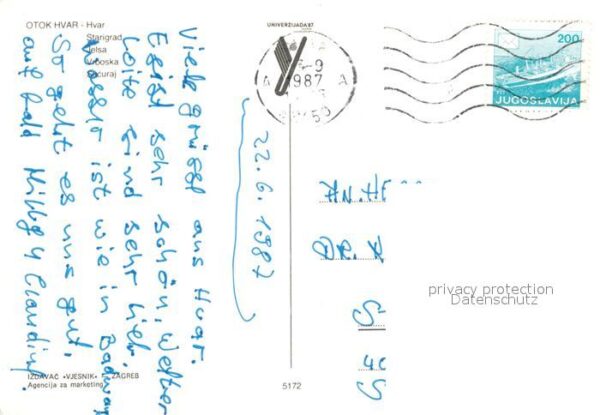 OTOK HVAR - Hvar
Starigrad
Jelsa
Vrboska
Sućuraj
UNIVERZIJADA '87
-9
1987
A A
200
JUGOSLAVIJA
22.6.1987
Viele grüße aus Hvar.
Es ist sehr schön, Wetter
Leite sind sehr lieb,
Wasser ist wie in
So geht es uns gut,
auf bald
AN.HE
DR.K
S
40
S
privacy protection
Datenschutz
IZDAVAČ »VJESNIK« ZAGREB
Agencija za marketing
5172